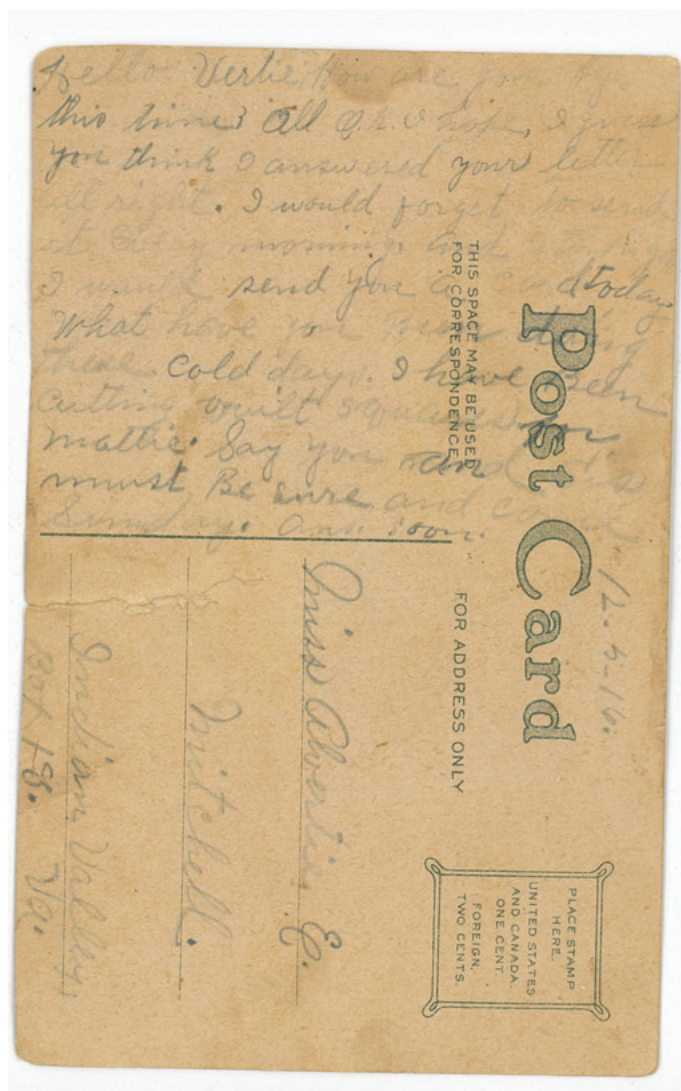 Hello Vertie, How are you by
this time? All O.K. I hope, I guess
you think I answered your letter
all right. I would forget to send
it Every morning. And
I would send you a card today.
What have you Been doing
these cold days. I have Been
cutting quilt squares for
mattie. Say you and
must Be sure and come
Sunday. Ans. soon.
Post Card
12-5-16.
THIS SPACE MAY BE USED
FOR CORRESPONDENCE
FOR ADDRESS ONLY
PLACE STAMP
HERE.
UNITED STATES
AND CANADA.
ONE CENT
FOREIGN,
TWO CENTS.
Miss Alvertie E.
Mitchell.
Indian Valley,
Box 18. Va.